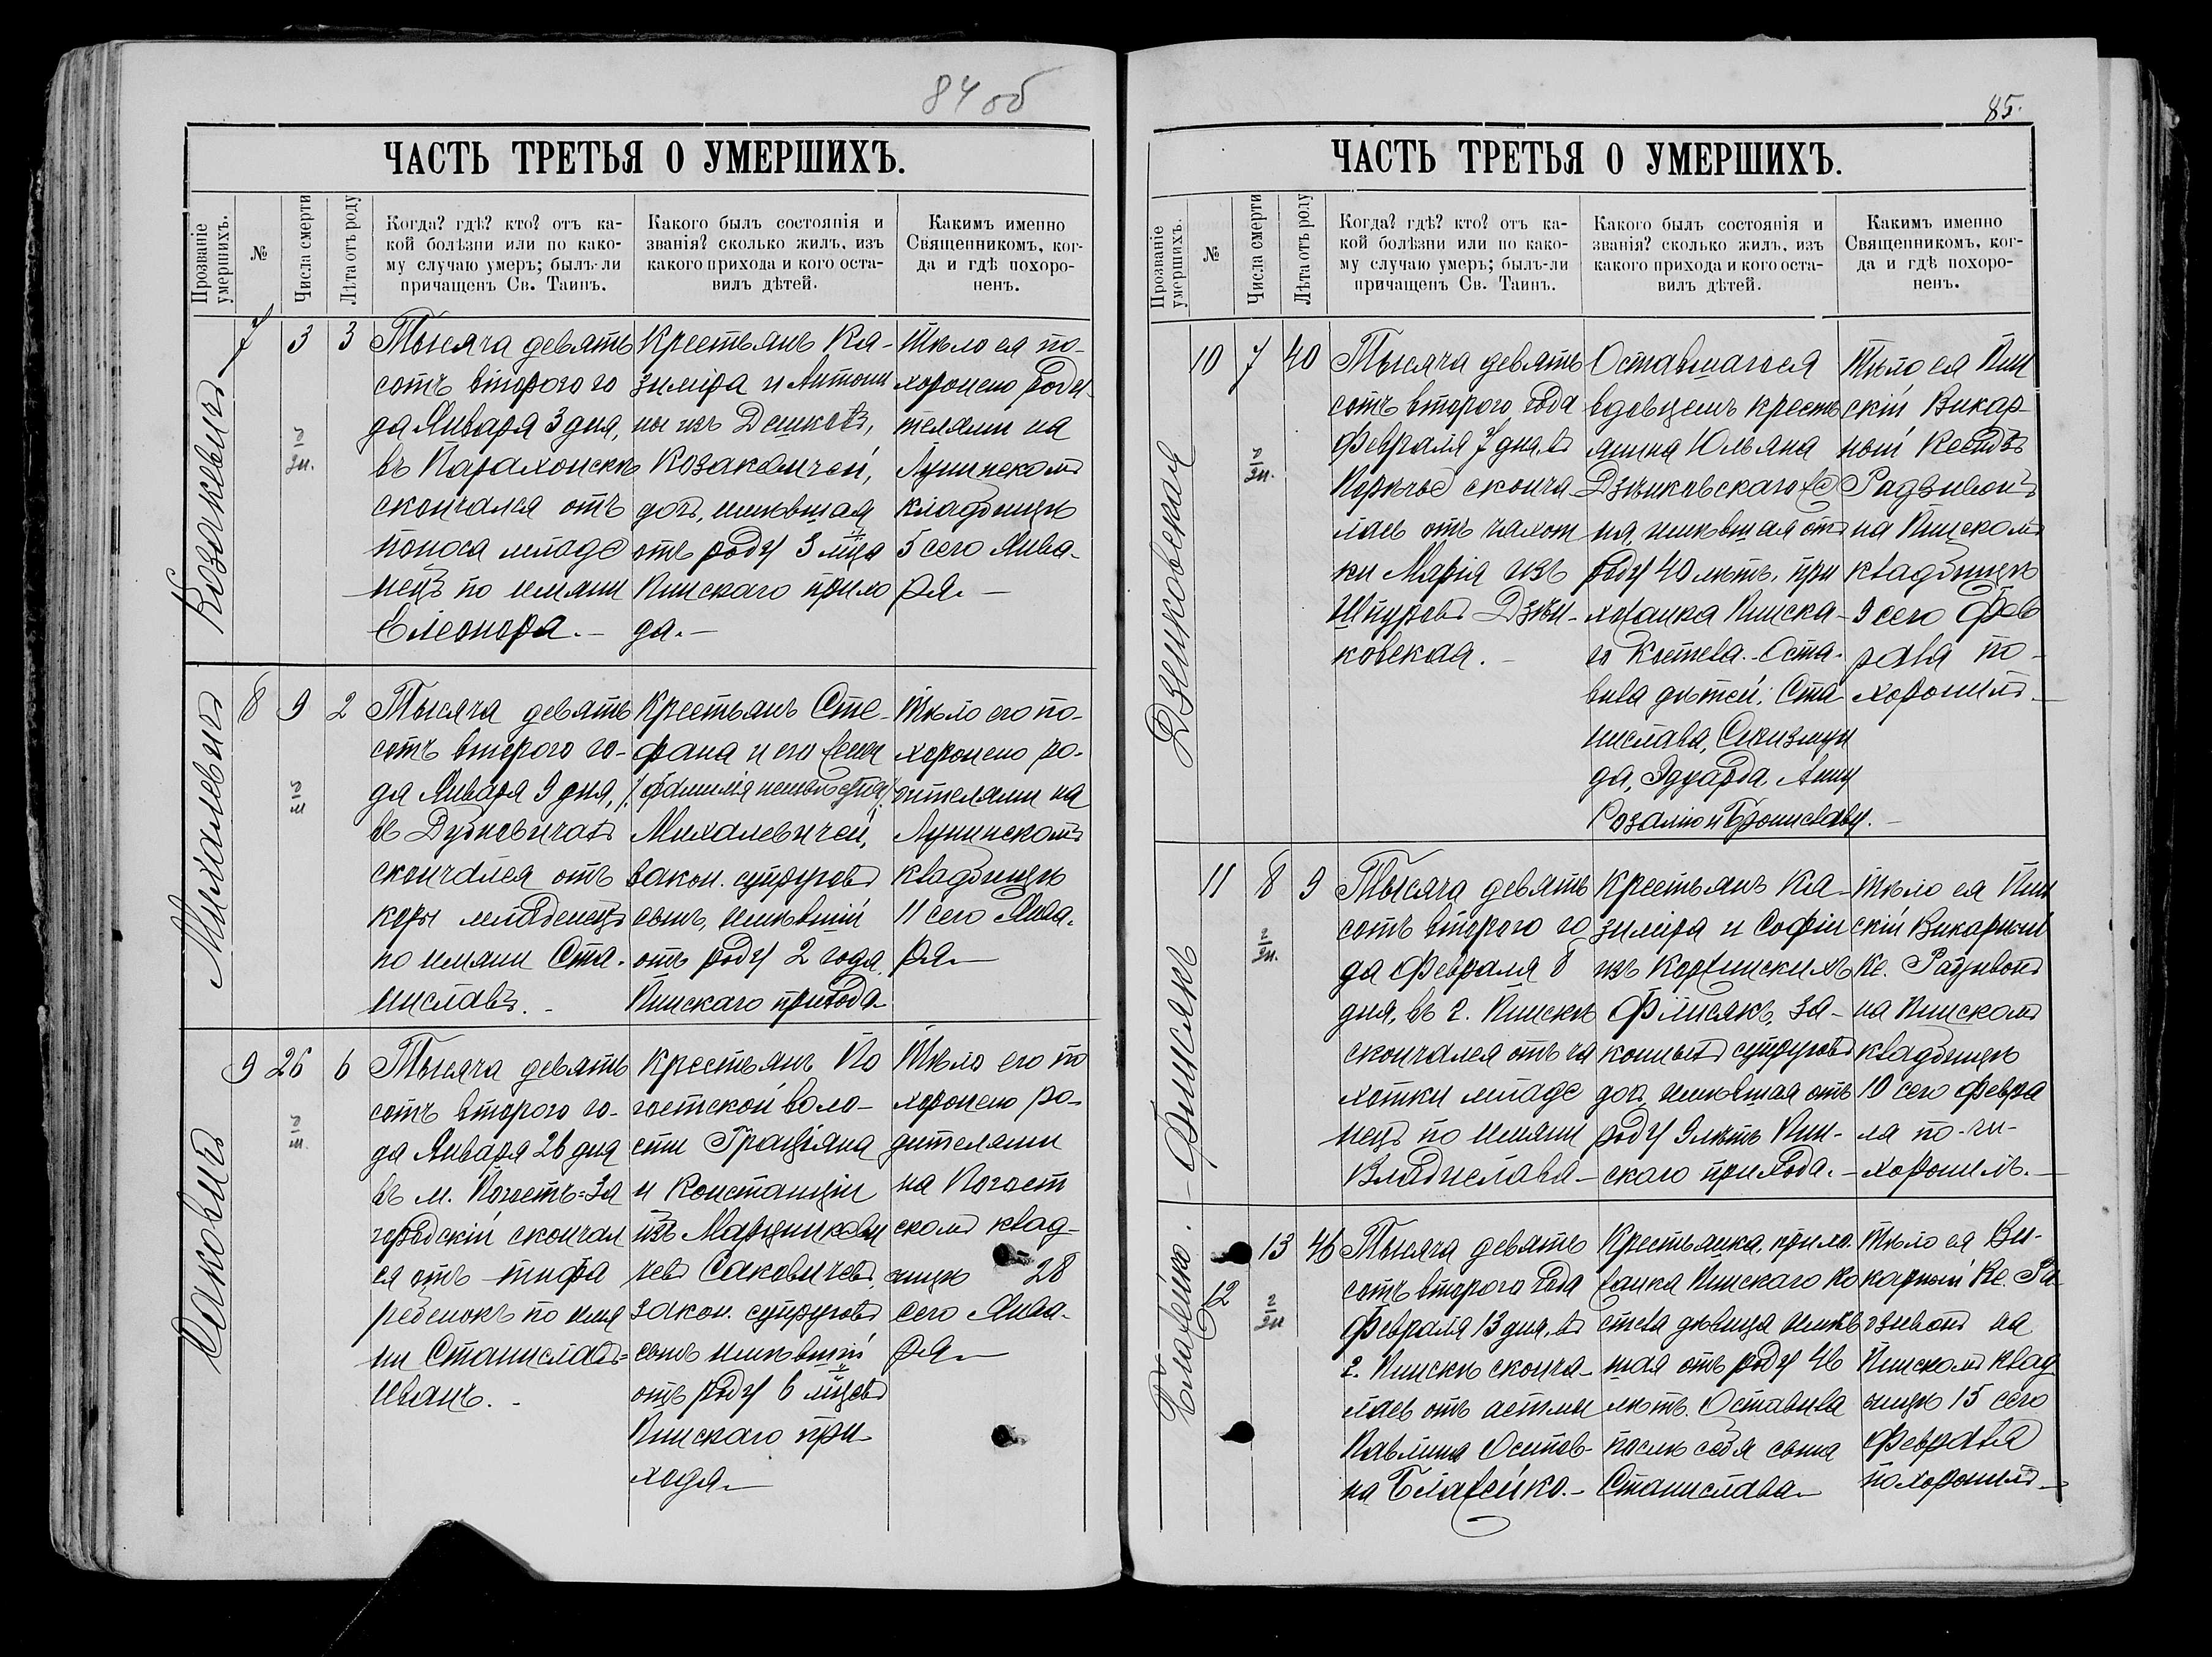 84 об
ЧАСТЬ ТРЕТЬЯ О УМЕРШИХЪ.
Прозваніе умершихъ.
№
Числа смерти
Лѣта отъ роду
Когда? гдѣ? кто? отъ ка-
кой болѣзни или по како-
му случаю умеръ; былъ-ли
причащенъ Св. Таинъ.
Какого былъ состоянія и
званія? сколько жилъ, изъ
какого прихода и кого оста-
вилъ дѣтей.
Какимъ именно
Священникомъ, ког-
да и гдѣ похоро-
ненъ.
Козакевичъ
7
3
3
Тысяча девять
сотъ второго го
да Января 3 дня,
въ Парахонскѣ
скончался отъ
поноса младе
нецъ по имени
Елеонора. –
Крестьянъ Ка-
зиміра и Антони
ны изъ
Козакевичей,
дочь, имѣвшая
отъ роду 3 мца
Пинскаго прихо
да. –
Тѣло ея по-
хоронено роди
телями на
Лунинскомъ
кладбищѣ
5 сего Янва-
ря. –
Михалевичъ
8
9
2
Тысяча девять
сотъ второго го-
да Января 9 дня,
въ Дубновичахъ
скончался отъ
кори младенецъ
по имени Ста-
ниславъ. -
Крестьянъ Сте-
фана и его жены
/: фамилія неизвѣстна :/
Михалевичей,
закон. супруговъ
сынъ, имѣвшій
отъ роду 2 года
Пинскаго прихода
Тѣло его по-
хоронено ро-
дителями на
Лунинскомъ
кладбищѣ
11 сего Янва-
ря. –
Саковичъ
9
26
6
Тысяча девять
сотъ второго го-
да Января 26 дня
въ м. Погостѣ=За
городскій скончал
ся отъ тифа
ребенокъ по име
ни Станиславъ=
Иванъ. -
Крестьянъ По
гостской воло-
сти Граціяна
и Констанціи
изъ Марцинкеви
чевъ Саковичевъ
закон. супруговъ
сынъ имѣвшій
отъ роду 6 мцевъ
Пинскаго при-
хода. –
Тѣло его по
хоронено ро-
дителями
на Погост
скомъ клад-
бищѣ 28
сего Янва-
ря. –
85.
ЧАСТЬ ТРЕТЬЯ О УМЕРШИХЪ.
Прозваніе умершихъ.
№
Числа смерти
Лѣта отъ роду
Когда? гдѣ? кто? отъ ка-
кой болѣзни или по како-
му случаю умеръ; былъ-ли
причащенъ Св. Таинъ.
Какого былъ состоянія и
званія? сколько жилъ, изъ
какого прихода и кого оста-
вилъ дѣтей.
Какимъ именно
Священникомъ, ког-
да и гдѣ похоро-
ненъ.
10
7
40
Тысяча девять
сотъ второго года
Февраля 7 дня, въ
Порѣчьѣ сконча
лась отъ чахот
ки Марія изъ
Шпуровъ
ковская. –
Оставшагося
вдовцемъ кресть
янина Юльяна
жена, имѣвшая отъ
роду 40 лѣтъ, при
хожанка Пинска-
го Костела. Оста-
вила дѣтей: Ста
нислава, Сигизмун
да, Эдуарда, Анну
Розалію и Брониславу. –
Тѣло ея Пин
скій Викар-
ный Ксендзъ
Радзивонъ
на Пинскомъ
кладбищѣ
9 сего Фев
раля по-
хоронилъ –
Филисякъ
11
8
9
Тысяча девять
сотъ второго го
да Февраля 8
дня, въ г. Пинскѣ
скончался отъ ча
хотки младе
нецъ по имени
Владислава –
Крестьянъ Ка-
зиміра и Софіи
изъ Коржинскихъ
Филисякъ, за-
конныхъ супруговъ
дочь, имѣвшая отъ
роду 9 лѣтъ Пин-
скаго прихода. –
Тѣло ея Пин
скій Викарный
Кс. Радзивонъ
на Пинскомъ
кладбищѣ
10 сего Февра
ля по-
хоронилъ. –
Блажейко.
12
13
46
Тысяча девять
сотъ второго года
Февраля 13 дня, въ
г. Пинскѣ сконча-
лась отъ астмы
Павлина Осипов-
на Блажейко. –
Крестьянка, прихо-
жанка Пинскаго Ко
стела дѣвица имѣв
шая отъ роду 46
лѣтъ. Оставила
послѣ себя сына
Станислава –
Тѣло ея Ви-
карный Кс. Ра
дзивонъ на
Пинскомъ клад
бищѣ 15 сего
Февраля
похоронилъ –